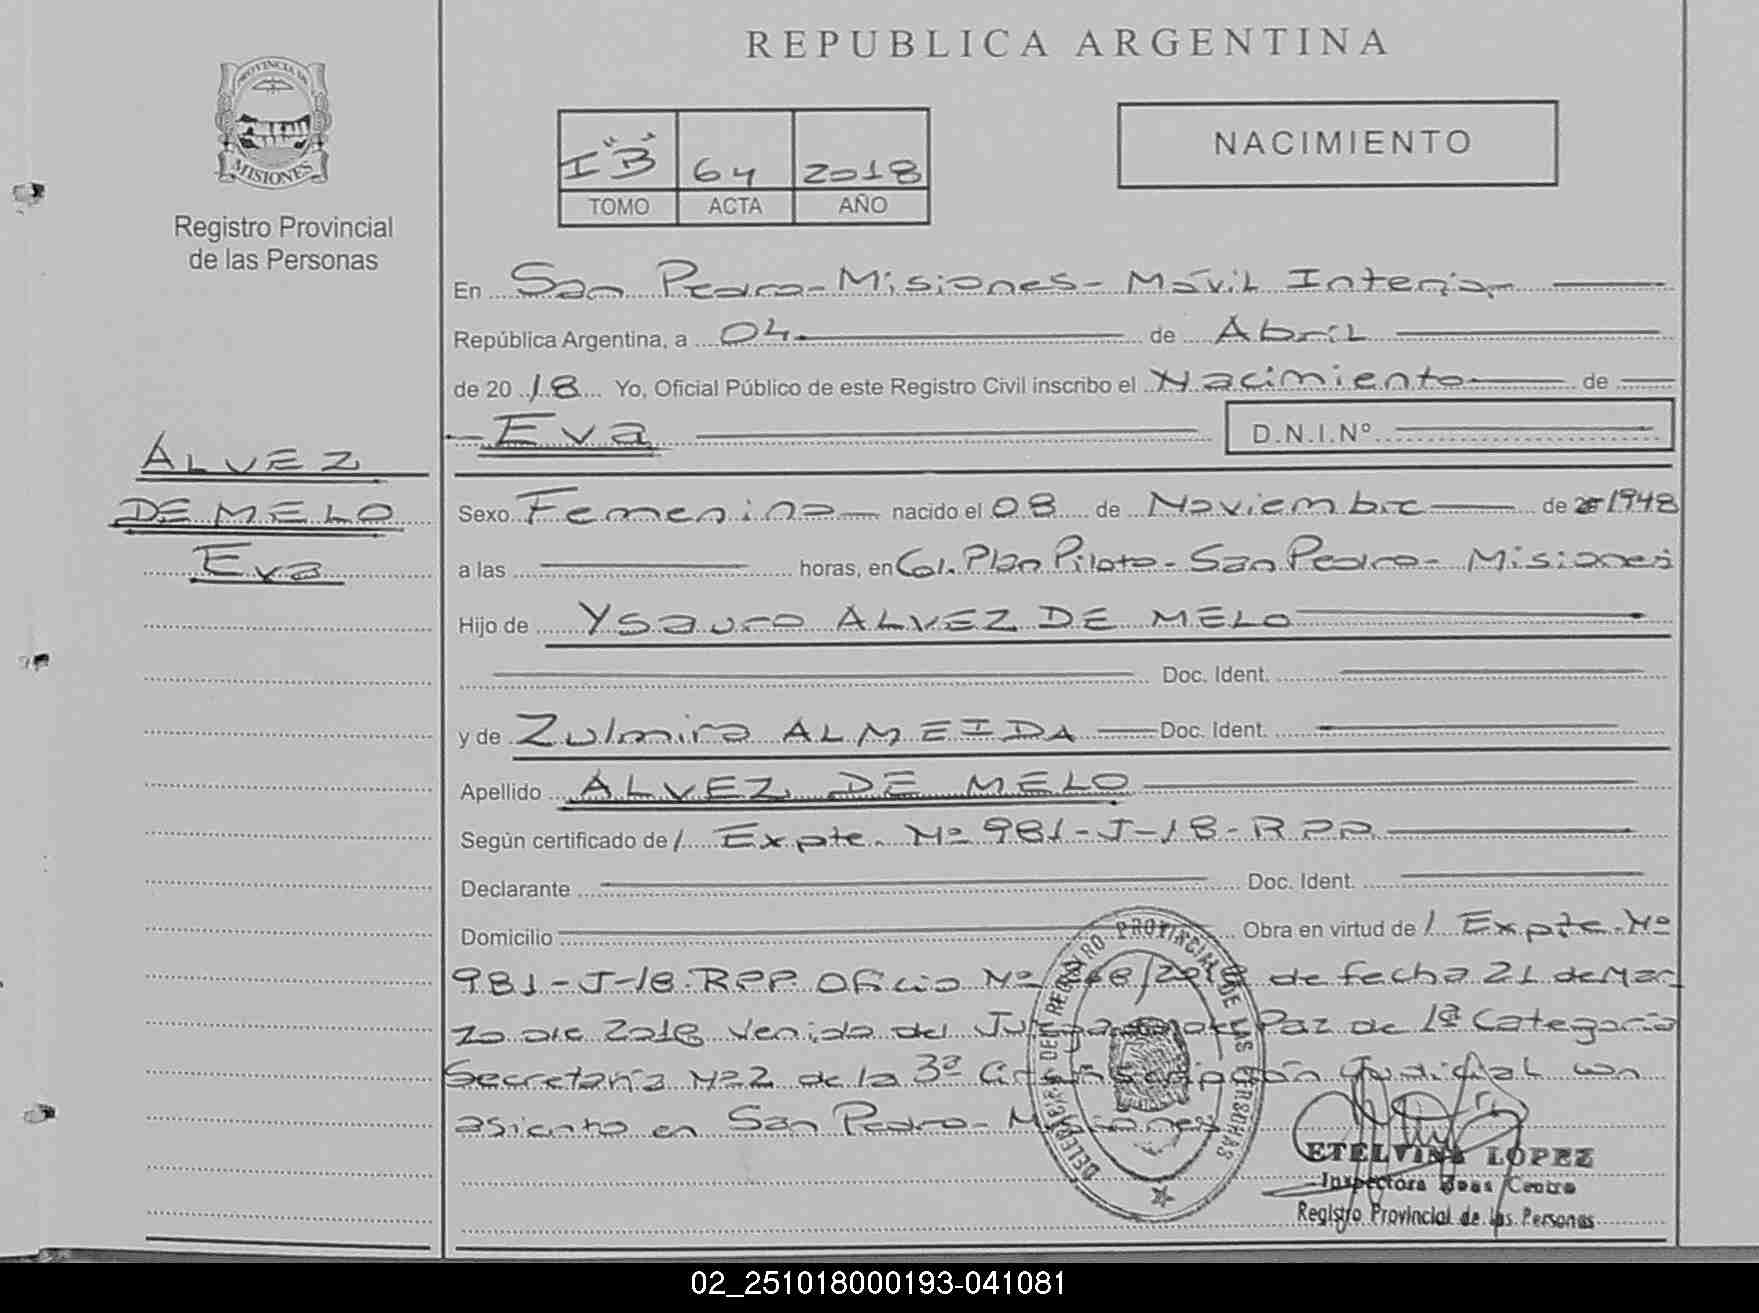 REPUBLICA ARGENTINA
PROVINCIA DE
MISIONES
Registro Provincial
de las Personas
I "B" 64 2018
TOMO ACTA AÑO
NACIMIENTO
En San Pedro - Misiones - Móvil Interior
República Argentina, a 04 de Abril
de 20 18 Yo, Oficial Público de este Registro Civil inscribo el Nacimiento de
Eva D.N.I.Nº
ALVEZ
DE MELO
Eva
Sexo Femenino nacido el 08 de Noviembre de 1948
a las horas, en Col. Plan Piloto - San Pedro - Misiones
Hijo de Ysauro ALVEZ DE MELO
Doc. Ident.
y de Zulmira ALMEIDA Doc. Ident.
Apellido ALVEZ DE MELO
Según certificado de / Expte. Nº 981-J-18-RPP
Declarante Doc. Ident.
Domicilio Obra en virtud de / Expte. Nº
981-J-18-RPP. Oficio Nº /2018 de fecha 21 de Mar
zo de 2018 venido del Juzgado de Paz de 1ª Categoria
Secretaría Nº2 de la 3ª Circunscripción Judicial con
asiento en San Pedro - Misiones
REGISTRO PROVINCIAL DE LAS PERSONAS
ETELVINA LOPEZ
Inspectora Zona Centro
Registro Provincial de las Personas
02_251018000193-041081